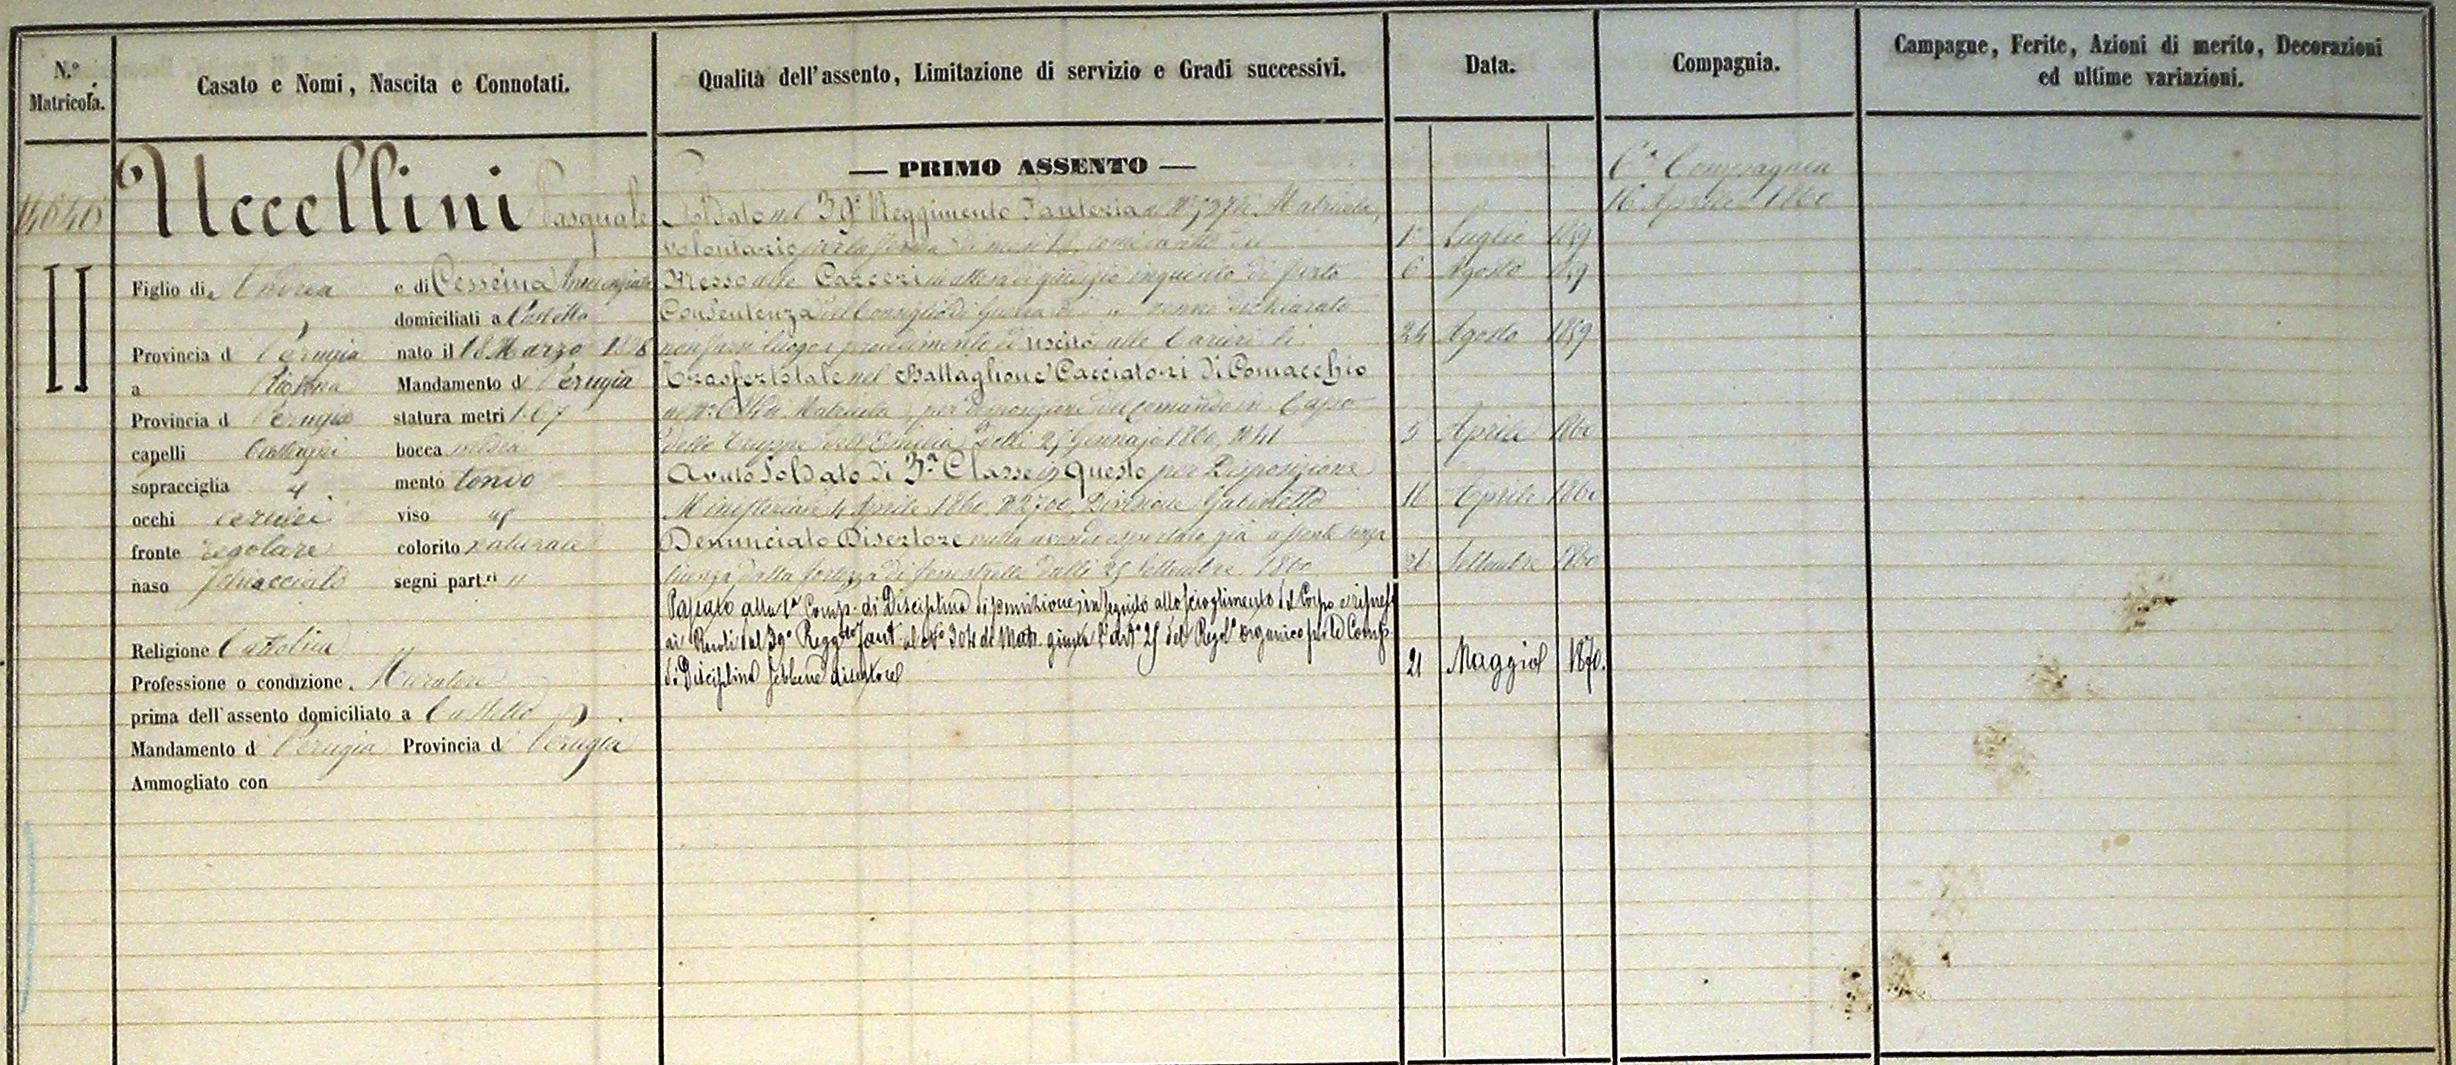 N.° Matricola.
Casato e Nomi, Nascita e Connotati.
Qualità dell'assento, Limitazione di servizio e Gradi successivi.
Data.
Compagnia.
Campagne, Ferite, Azioni di merito, Decorazioni
ed ultime variazioni.
Uccellini Pasquale
II
Figlio di Andrea e di Nunziata
domiciliati a Castello
Provincia d Perugia nato il 18 Marzo
a Mandamento d Perugia
Provincia d Perugia statura metri 1.67
capelli Castagni bocca media
sopracciglia mento tondo
occhi cerulei viso
fronte regolare colorito naturale
naso schiacciato segni part.ri "
Religione Cattolica
Professione o condizione. Muratore
prima dell'assento domiciliato a Castello
Mandamento d Perugia Provincia d Perugia
Ammogliato con
— PRIMO ASSENTO —
Soldato nel 39° Reggimento Fanteria al N° di Matricola,
volontario per la ferma di mesi 18, come da atto del 1° Luglio 1859
Messo alle Carceri in attesa di giudizio inquisito di furto 6 Agosto 1859
Con Sentenza del Consiglio di Guerra venne dichiarato
non farsi luogo a procedimento ed uscito dalle Carceri li 24 Agosto 1859
Trasferto tale nel Battaglione Cacciatori di Comacchio
al N° di Matricola, per disposizione del comando in Capo
delle Truppe dell'Emilia delli Gennajo 1860, N° 41 5 Aprile 1860
Avuto Soldato di 3ª Classe in questo per Disposizione
Ministeriale 4 Aprile 1860 N° 2700, Divisione Gabinetto 16 Aprile 1860
Denunciato Disertore già assente senza
licenza dalla fortezza di Fenestrelle dalli 25 Settembre 1860 Settembre 1860
Passato alla 1ª Comp. di Disciplina di punizione, in seguito allo scioglimento del Corpo e ripreso
ai Ruoli dal 39° Regg.to Fant. al N° 304 di Mat. giusta l'art° 25 del Regol° organico per le Comp.
di Disciplina sebbene disertore 21 Maggio 1870.
6ª Compagnia
16 Aprile 1860